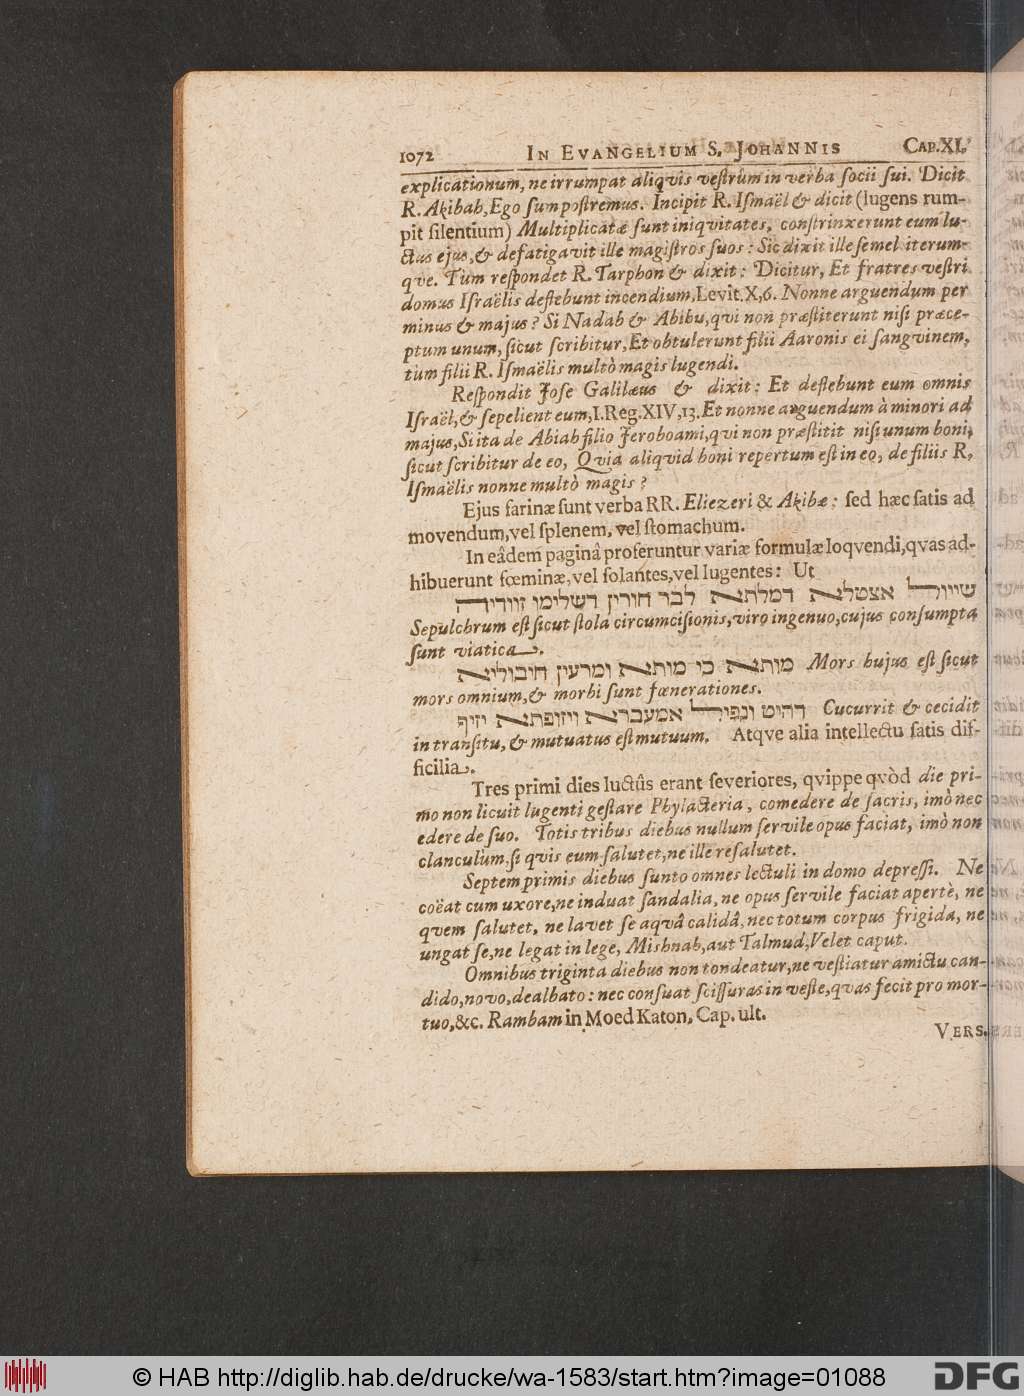 1072 IN EVANGELIUM S. JOHANNIS CAP.XI.
explicationum, ne irrumpat aliqvis vestrûm in verba socii sui. Dicit
R. Akibah, Ego sum postremus. Incipit R. Ismaël & dicit (lugens rum-
pit silentium) Multiplicatæ sunt iniqvitates, constrinxerunt eum lu-
ctus ejus, & defatigavit ille magistros suos: Sic dixit ille semel iterum-
qve. Tùm respondet R. Tarphon & dixit: Dicitur, Et fratres vestri
domus Israëlis deflebunt incendium, Levit. X, 6. Nonne arguendum per
minus & majus? Si Nadab & Abibu, qvi non præstiterunt nisi præce-
ptum unum, sicut scribitur, Et obtulerunt filii Aaronis ei sangvinem,
tùm filii R. Ismaëlis multò magis lugendi.
Respondit Jose Galilæus & dixit: Et deflebunt eum omnis
Israël, & sepelient eum, I. Reg. XIV, 13. Et nonne arguendum à minori ad
majus, Si ita de Abiah filio Jeroboami, qvi non præstitit nisi unum boni,
sicut scribitur de eo, Qvia aliqvid boni repertum est in eo, de filiis R.
Ismaëlis nonne multò magis?
Ejus farinæ sunt verba RR. Eliezeri & Akibæ: sed hæc satis ad
movendum, vel splenem, vel stomachum.
In eâdem paginâ proferuntur variæ formulæ loqvendi, qvas ad-
hibuerunt fœminæ, vel solantes, vel lugentes: Ut
שייול אצטלא דמלתא לבר חורין דשלימו זוודיה
Sepulchrum est sicut stola circumcisionis, viro ingenuo, cujus consumpta
sunt viatica.
מותא כי מותא ומרעין חיבוליא Mors hujus est sicut
mors omnium, & morbi sunt fœnerationes.
דהיט ונפול אמעברא ויזופתא יזיף Cucurrit & cecidit
in transitu, & mutuatus est mutuum. Atqve alia intellectu satis dif-
ficilia.
Tres primi dies luctûs erant severiores, qvippe qvòd die pri-
mo non licuit lugenti gestare Phylacteria, comedere de sacris, imò nec
edere de suo. Totis tribus diebus nullum servile opus faciat, imò non
clanculùm, si qvis eum salutet, ne ille resalutet.
Septem primis diebus sunto omnes lectuli in domo depressi. Ne
coëat cum uxore, ne induat sandalia, ne opus servile faciat apertè, ne
qvem salutet, ne lavet se aqvâ calidâ, nec totum corpus frigida, ne
ungat se, ne legat in lege, Mishnah, aut Talmud, Velet caput.
Omnibus triginta diebus non tondeatur, ne vestiatur amictu can-
dido, novo, dealbato: nec consuat scissuras in veste, qvas fecit pro mor-
tuo, &c. Rambam in Moed Katon, Cap. ult.
VERS.
© HAB http://diglib.hab.de/drucke/wa-1583/start.htm?image=01088
DFG